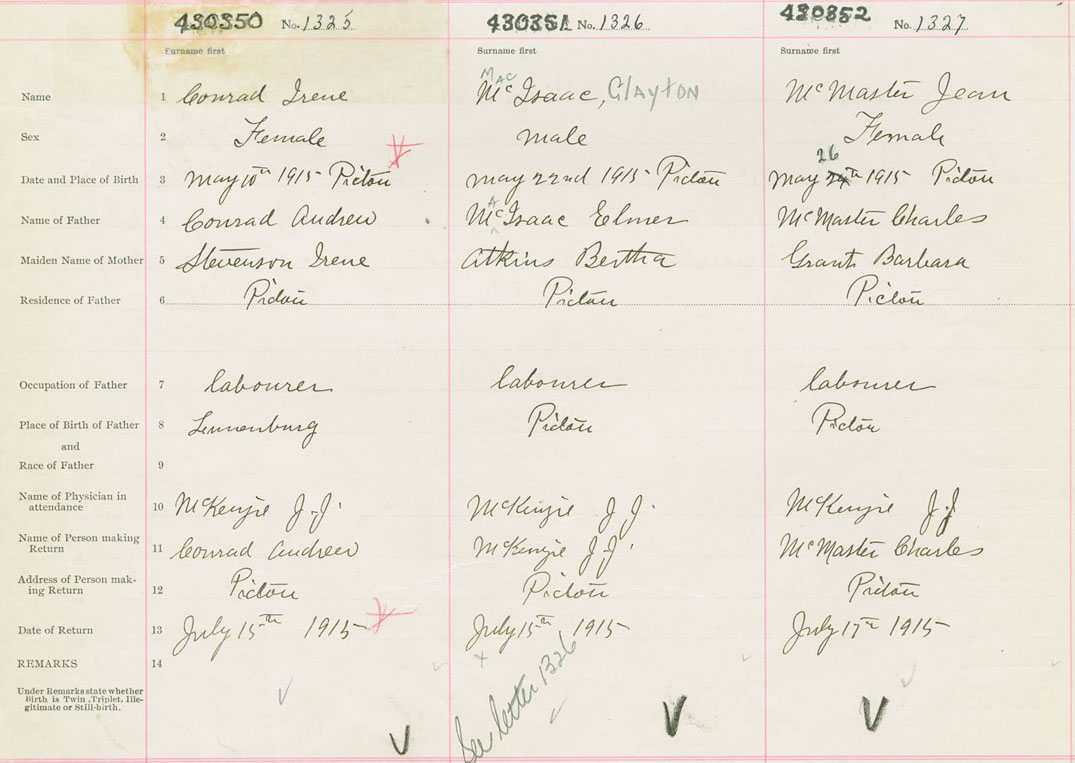 430350 No. 1325 430351 No. 1326 430352 No. 1327
Surname first Surname first Surname first
Name 1 Conrad Irene Mac McIsaac, Clayton McMaster Jean
Sex 2 Female male Female
26
Date and Place of Birth 3 May 10th 1915 Pictou may 22nd 1915 Pictou May 24th 1915 Pictou
Name of Father 4 Conrad Andrew McIsaac Elmer McMaster Charles
Maiden Name of Mother 5 Stevenson Irene Atkins Bertha Grant Barbara
Residence of Father 6 Pictou Pictou Pictou
Occupation of Father 7 labourer labourer labourer
Place of Birth of Father 8 Lunenburg Pictou Pictou
and
Race of Father 9
Name of Physician in
attendance 10 McKenzie J.J. McKenzie J J. McKenzie J.J
Name of Person making
Return 11 Conrad Andrew McKenzie J.J. McMaster Charles
Address of Person mak-
ing Return 12 Pictou Pictou Pictou
Date of Return 13 July 15th 1915 July 15th 1915 July 17th 1915
REMARKS 14
x
See letter 1326
Under Remarks state whether
Birth is Twin, Triplet, Ille-
gitimate or Still-birth.